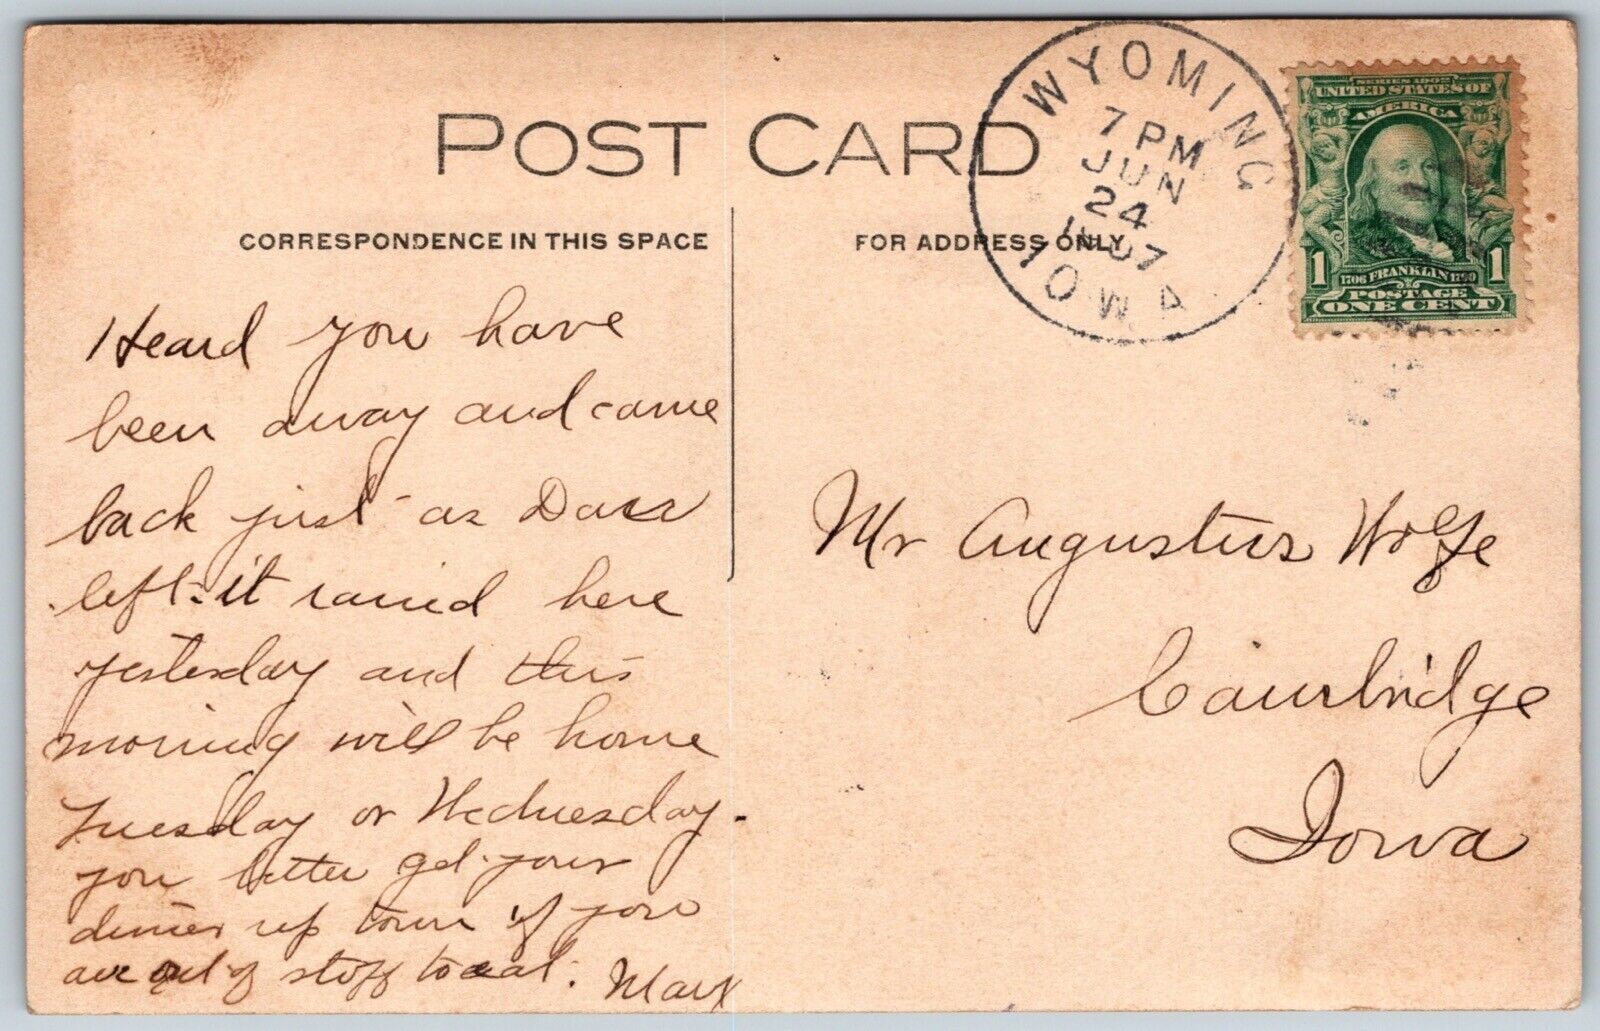 POST CARD
CORRESPONDENCE IN THIS SPACE
FOR ADDRESS ONLY
WYOMING
7 PM
JUN
24
1907
IOWA
SERIES 1902
UNITED STATES OF
AMERICA
1 1706 FRANKLIN 1790 1
POSTAGE
ONE CENT
Heard you have
been away and came
back just as
left - it rained here
yesterday and this
morning will be home
Tuesday or Wednesday.
you better get your
dinner up town if you
are out of stuff to eat.
Mr Augustus Wolfe
Cambridge
Iowa